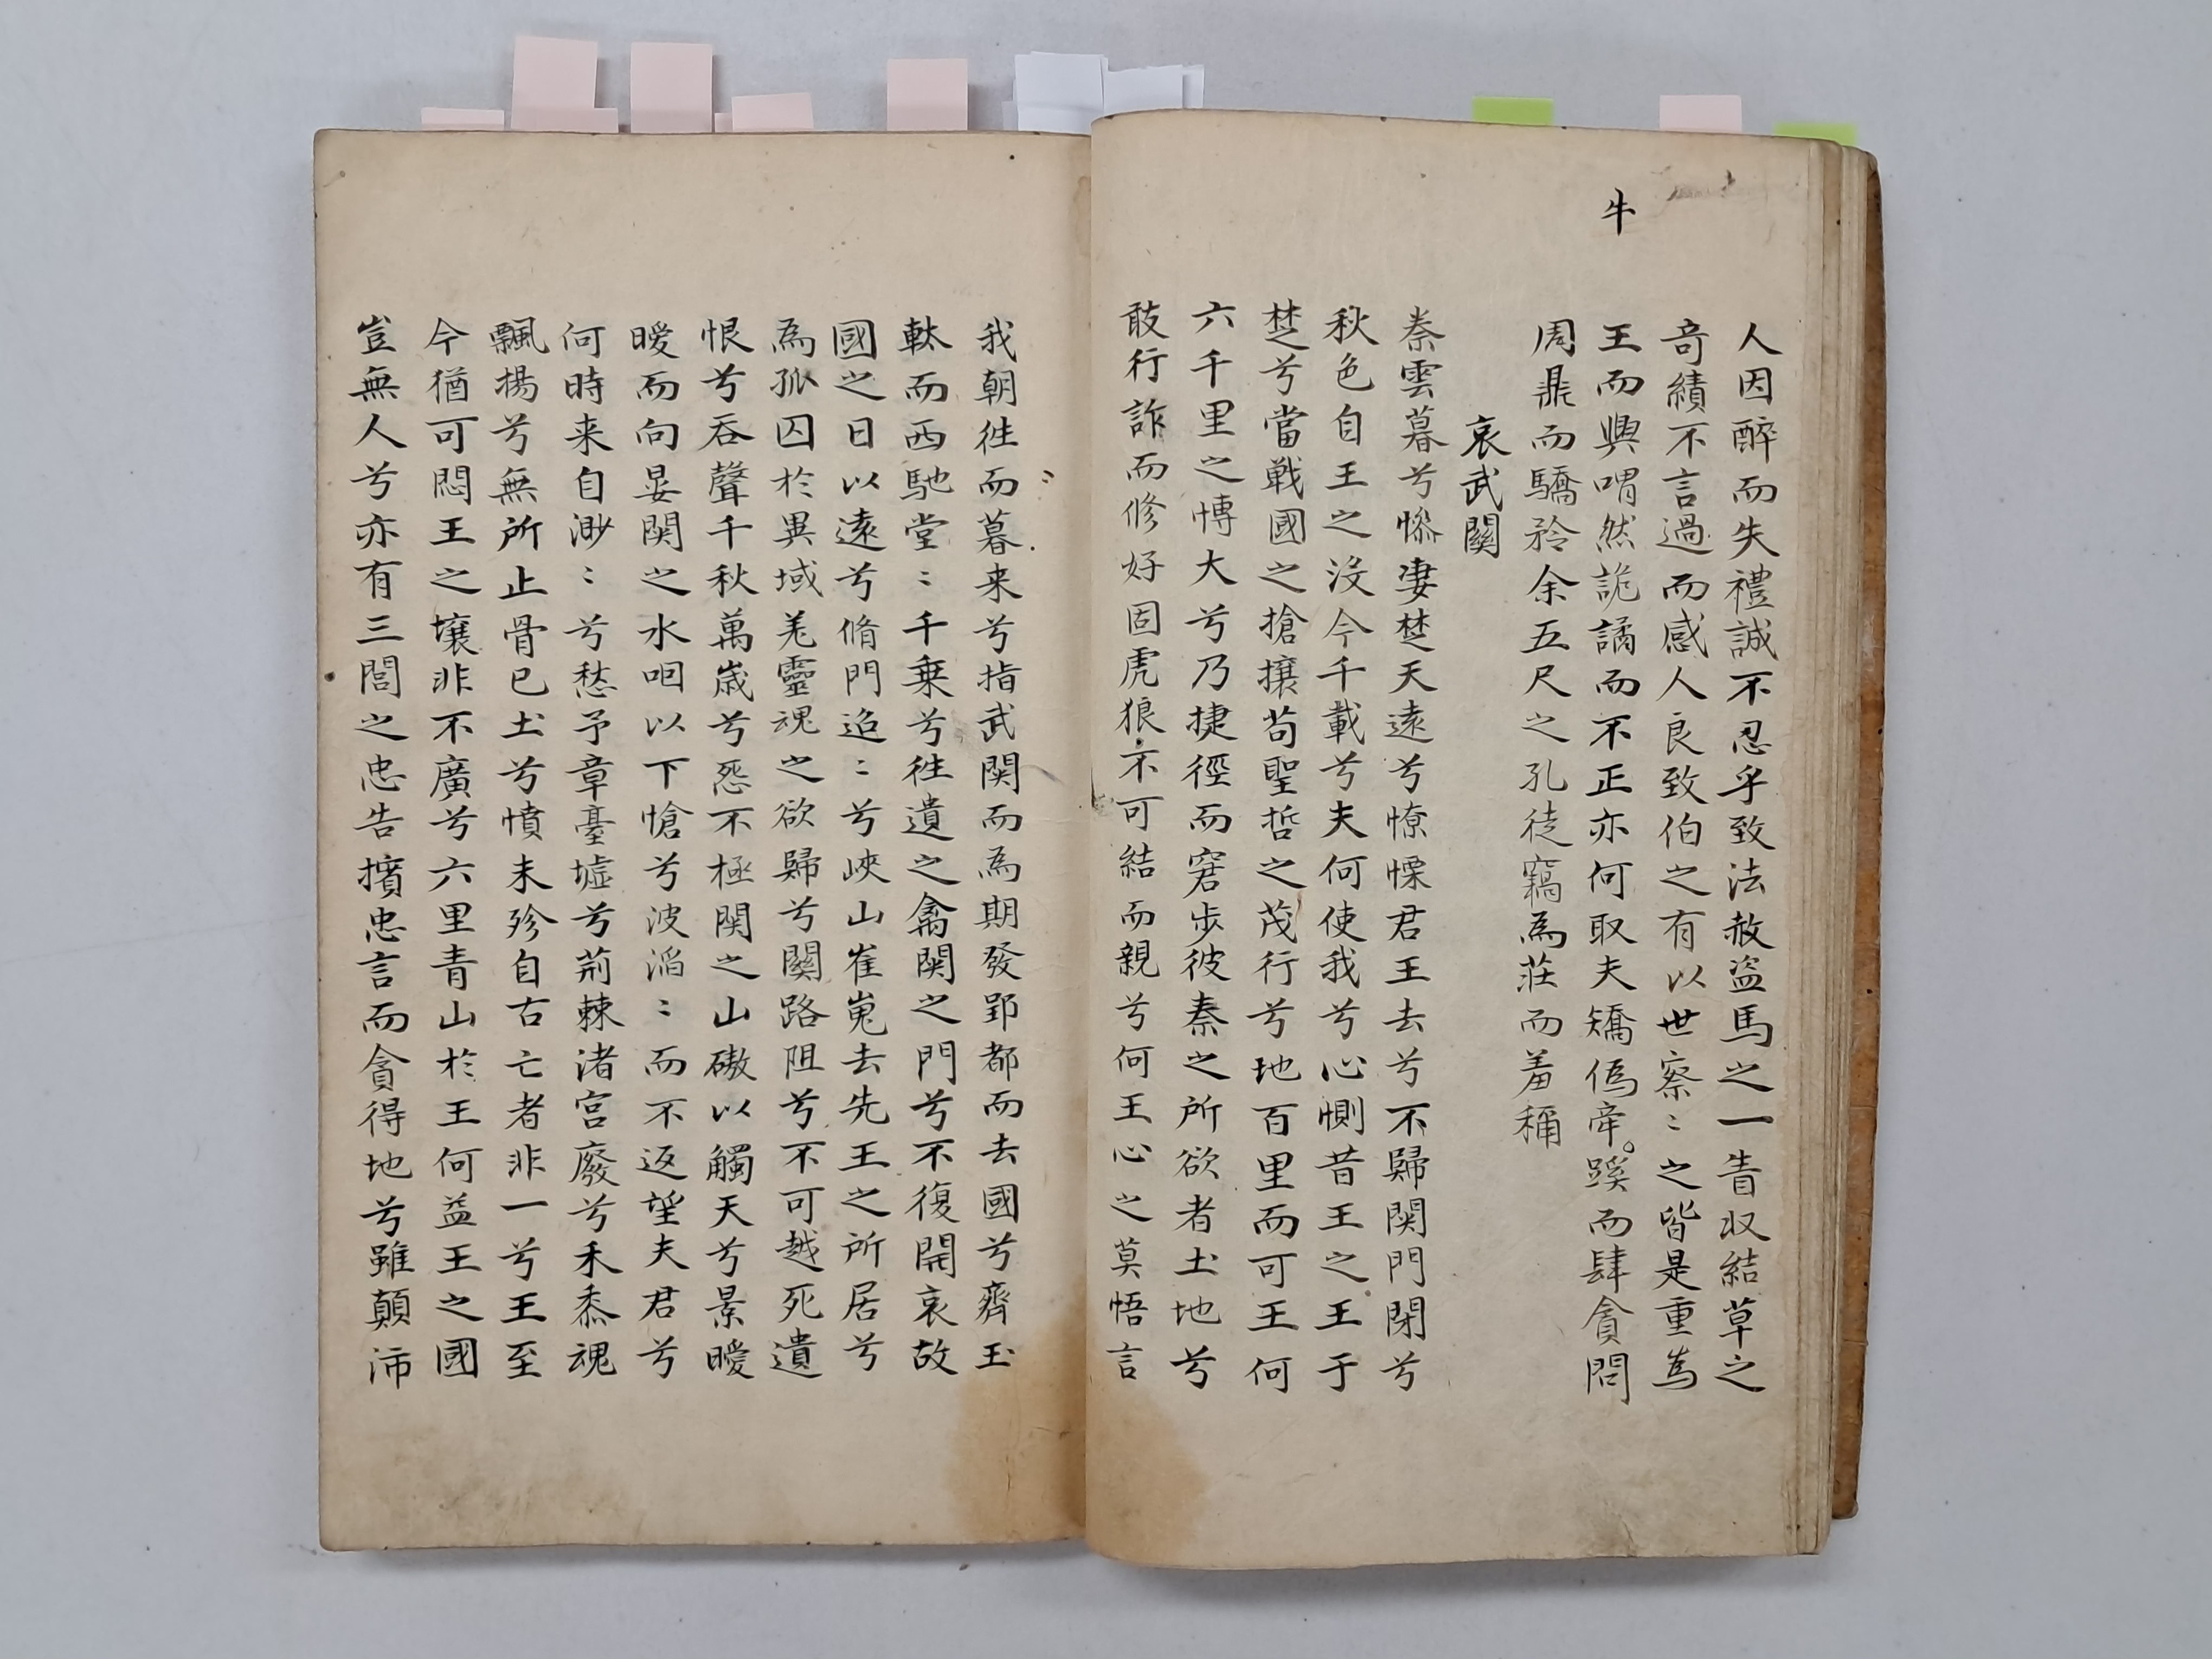 牛
人因醉而失禮誠不忍乎致法赦盜馬之一眚収結草之
奇績不言過而感人良致伯之有以世察〻之皆是重為
王而興喟然詭譎而不正亦何取夫矯僞牽蹊而肆貪問
周鼎而驕矜余五尺之孔徒竊為莊而羞稱
哀武關
秦雲暮兮慘凄楚天遠兮憭慄君王去兮不歸関門閉兮
秋色自王之沒今千載兮夫何使我兮心惻昔王之王于
楚兮當戦國之搶攘苟聖哲之茂行兮地百里而可王何
六千里之博大兮乃捷徑而窘步彼秦之所欲者土地兮
敢行詐而修好固虎狼不可結而親兮何王心之莫悟言
我朝徃而暮来兮指武関而為期發郢都而去國兮齊玉
軑而西馳堂〻千乗兮徃遺之禽関之門兮不復開哀故
國之日以遠兮脩門迢〻兮峽山崔嵬去先王之所居兮
為孤囚於異域羌靈魂之欲歸兮關路阻兮不可越死遺
恨兮吞聲千秋萬歲兮怨不極関之山磝以觸天兮景曖
曖而向晏関之水咽以下愴兮波滔〻而不返望夫君兮
何時来自渺〻兮愁予章臺墟兮荊棘渚宮廢兮禾黍魂
飄揚兮無所止骨已土兮憤未殄自古亡者非一兮王至
今猶可悶王之壤非不廣兮六里青山於王何益王之國
豈無人兮亦有三閭之忠告擯忠言而貪得地兮雖顛沛